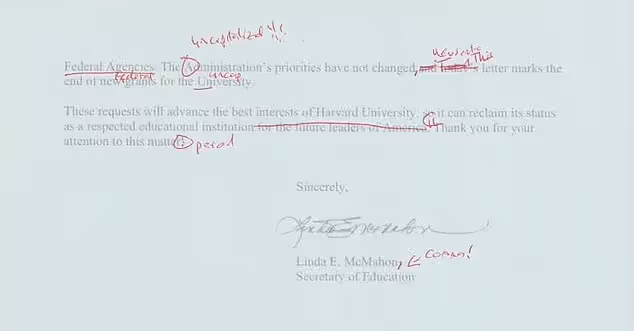 uncapitalized !!!
rewrite
Federal Agencies. The Administration's priorities have not changed, and today's This letter marks the
federal uncap
end of new grants for the University.
These requests will advance the best interests of Harvard University, so it can reclaim its status
as a respected educational institution for the future leaders of America. Thank you for your
attention to this matter; period
Sincerely,
Linda E. McMahon
Linda E. McMahon, comma!
Secretary of Education